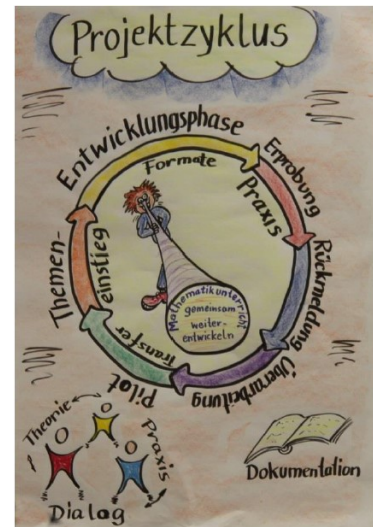 Projektzyklus
Entwicklungsphase
Formate
Erprobung
Praxis
Rückmeldung
Überarbeitung
Pilot
Transfer
Themen-
einstieg
Mathematikunterricht
gemeinsam
weiter-
entwickeln
Theorie
Praxis
Dialog
Dokumentation